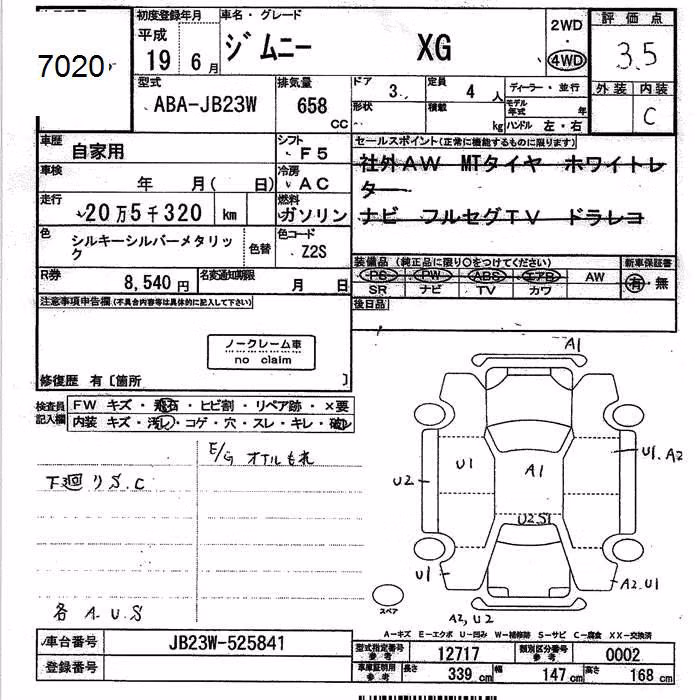 7020
初度登録年月
平成
19 6月
車名・グレード
ジムニー XG
2WD
・
4WD
評価点
3.5
外装 内装
C
型式
ABA-JB23W
排気量
658
CC
ドア
3
形状
定員
4人
積載
kg
ディーラー・並行
モデル年式 年
ハンドル 左・右
車歴
自家用
シフト
F5
車検
年 月( 日)
冷房
AC
走行
20万5千320 km
燃料
ガソリン
色
シルキーシルバーメタリック
色替
色コード
Z2S
R券
8,540円
名変通知期限
月 日
セールスポイント(正常に機能するものに限ります)
社外AW MTタイヤ ホワイトレ
ター
ナビ フルセグTV ドラレコ
装備品(純正品に限り○をつけてください)
PS PW ABS エアB AW
SR ナビ TV カワ
新車保証書
有・無
後日品
注意事項申告欄(不具合内容等は具体的に記入して下さい)
ノークレーム車
no claim
修復歴 有〔箇所 〕
検査員記入欄
FW キズ・飛石・ヒビ割・リペア跡・×要
内装 キズ・汚レ・コゲ・穴・スレ・キレ・破レ
E/G オイルもれ
下廻りS.C
各 A.U.S
A1
U1
A1
U1.A2
U2
U2.S1
U1
A2.U1
A2,U2
スペア
A－キズ E－エクボ U－凹み W－補修跡 S－サビ C－腐食 XX－交換済
車台番号
JB23W-525841
登録番号
型式指定番号
参考
12717
類別区分番号
参考
0002
車庫証明用
参考
長さ
339 cm
幅
147 cm
高さ
168 cm